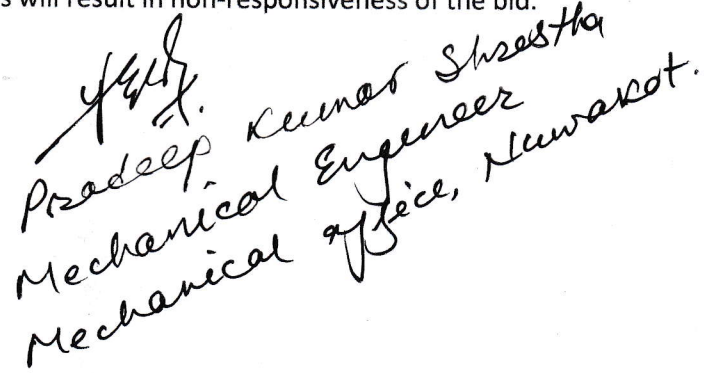 s will result in non-responsiveness of the bid.
Pradeep Kumar Shrestha
Mechanical Engineer
Mechanical office, Nuwakot.